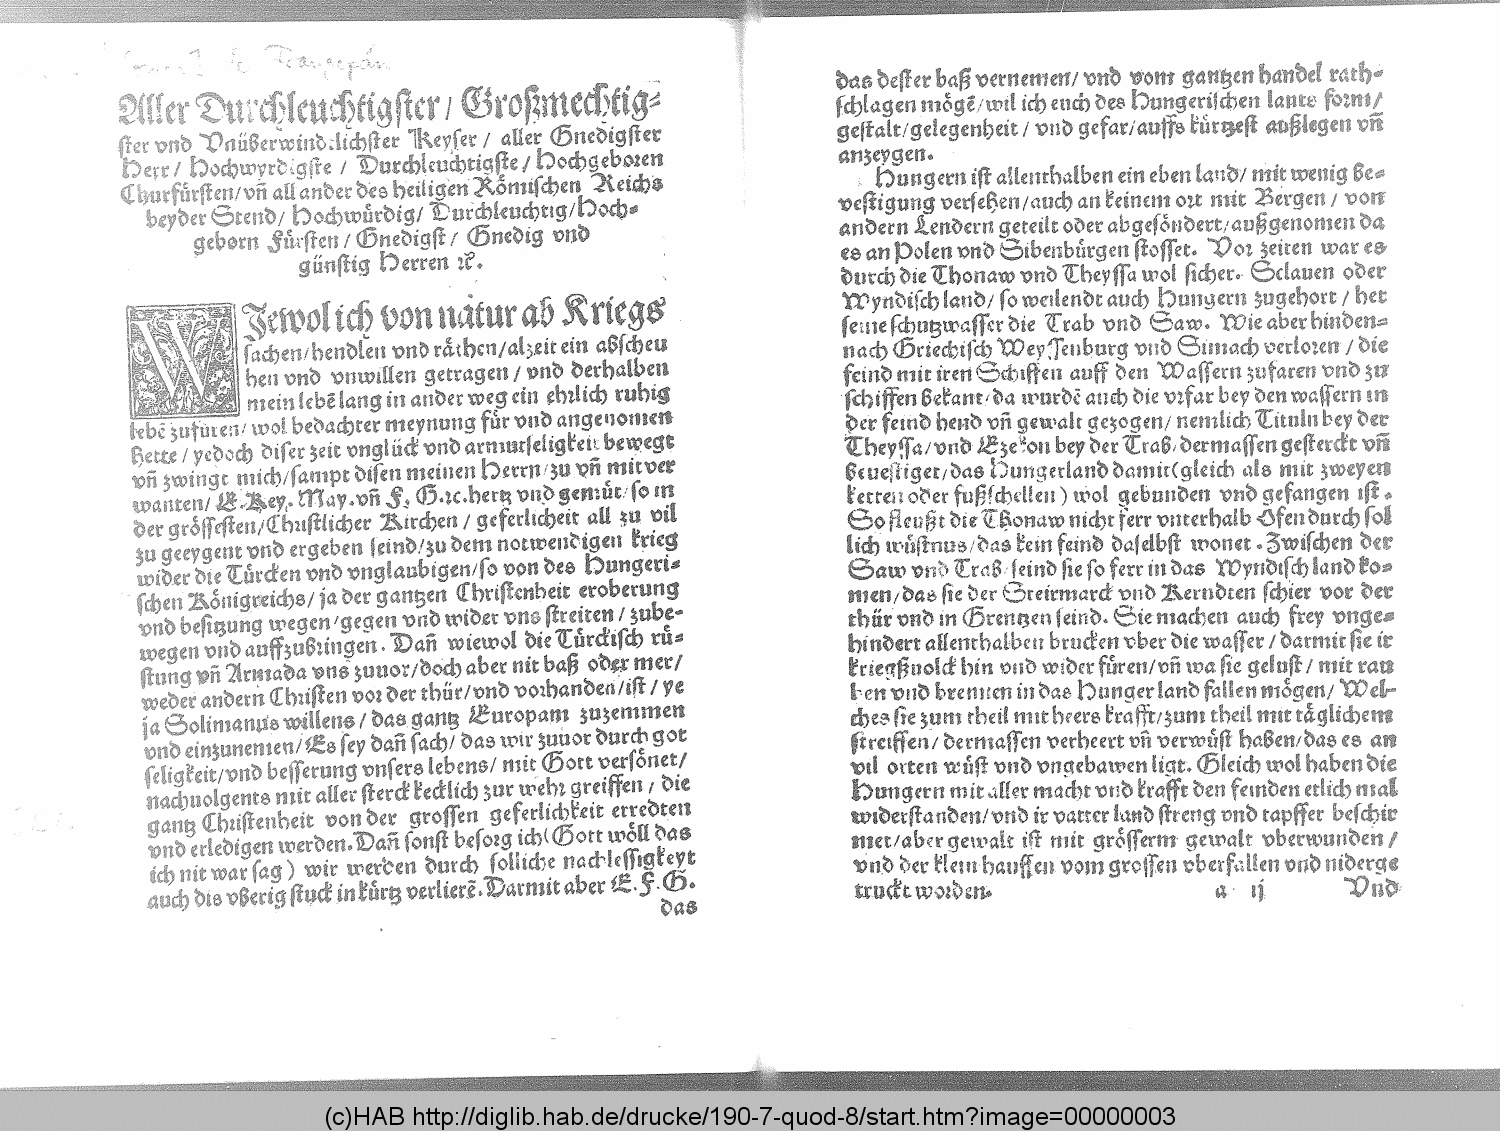 Aller Durchleuchtigster / Großmechtig⸗
ster vnd Vnüberwindlichster Keyser / aller Gnedigster
Herr / Hochwyrdigste / Durchleuchtigste / Hochgeboren
Churfürsten / vñ all ander des heiligen Römischen Reichs
beyder Stend / Hochwürdig / Durchleuchtig / Hoch⸗
geborn Fürsten / Gnedigst / Gnedig vnd
günstig Herren ꝛc.
WJewol ich von natur ab Kriegs
sachen / hendlen vnd räthen / alzeit ein abscheu
hen vnd vnwillen getragen / vnd derhalben
mein lebē lang in ander weg ein ehrlich ruhig
lebē zufüren / wol bedachter meynung für vnd angenomen
hette / yedoch diser zeit vnglück vnd armutseligkeit bewegt
vñ zwingt mich / sampt disen meinen Herrn / zu vñ mit ver
wanten / E. Key. May. vñ F. G. ꝛc. hertz vnd gemüt / so in
der grössesten / Christlicher Kirchen / geferlicheit all zu vil
zu geeygent vnd ergeben seind / zu dem notwendigen krieg
wider die Türcken vnd vnglaubigen / so von des Hungeri⸗
schen Königreichs / ja der gantzen Christenheit eroberung
vnd besitzung wegen / gegen vnd wider vns streiten / zube⸗
wegen vnd auffzubringen. Dañ wiewol die Türckisch rü⸗
stung vñ Armada vns zuuor / doch aber nit baß oder mer /
weder andern Christen vor der thür / vnd vorhanden / ist / ye
ja Solimanus willens / das gantz Europam zuzemmen
vnd einzunemen / Es sey dañ sach / das wir zuuor durch got
seligkeit / vnd besserung vnsers lebens / mit Gott versönet /
nachuolgents mit aller sterck kecklich zur wehr greiffen / die
gantz Christenheit von der grossen geferlichkeit erredten
vnd erledigen werden. Dañ sonst besorg ich (Gott wöll das
ich nit war sag) wir werden durch solliche nachlessigkeyt
auch die vberig stuck in kürtz verlierē. Darmit aber E. F. G.
das
das dester baß vernemen / vnd vom gantzen handel rath⸗
schlagen mögē / wil ich euch des Hungerischen lants form /
gestalt / gelegenheit / vnd gefar / auffs kürtzest außlegen vñ
anzeygen.
Hungern ist allenthalben ein eben land / mit wenig be⸗
vestigung versehen / auch an keinem ort mit Bergen / von
andern Lendern geteilt oder abgesöndert / außgenomen da
es an Polen vnd Sibenbürgen stosset. Vor zeiten war es
durch die Thonaw vnd Theyssa wol sicher. Sclauen oder
Wyndisch land / so weilendt auch Hungern zugehort / het
seine schutzwasser die Trab vnd Saw. Wie aber hinden⸗
nach Griechisch Weyssenburg vnd Simach verloren / die
feind mit iren Schiffen auff den Wassern zufaren vnd zu
schiffen bekant / da wurdē auch die vrfar bey den wassern in
der feind hend vñ gewalt gezogen / nemlich Tituln bey der
Theyssa / vnd Ezekon bey der Trab / dermassen gesterckt vñ
beuestiget / das Hungerland damit (gleich als mit zweyen
ketten oder fußschellen) wol gebunden vnd gefangen ist.
So fleußt die Thonaw nicht ferr vnterhalb Ofen durch sol
lich wüstnus / das kein feind daselbst wonet. Zwischen der
Saw vnd Trab seind sie so ferr in das Wyndisch land ko⸗
men / das sie der Steirmarck vnd Kerndten schier vor der
thür vnd in Grentzen seind. Sie machen auch frey vnge⸗
hindert allenthalben brucken vber die wasser / darmit sie ir
kriegßuolck hin vnd wider füren / vñ wa sie gelust / mit rau
ben vnd brennen in das Hunger land fallen mögen / Wel⸗
ches sie zum theil mit heers krafft / zum theil mit täglichem
streiffen / dermassen verheert vñ verwüst haben / das es an
vil orten wüst vnd vngebawen ligt. Gleich wol haben die
Hungern mit aller macht vnd krafft den feinden etlich mal
widerstanden / vnd ir vatter land streng vnd tapffer beschir
met / aber gewalt ist mit grösserm gewalt vberwunden /
vnd der klein hauffen vom grossen vberfallen vnd niderge
truckt worden.
a ij Vnd
(c)HAB http://diglib.hab.de/drucke/190-7-quod-8/start.htm?image=00000003